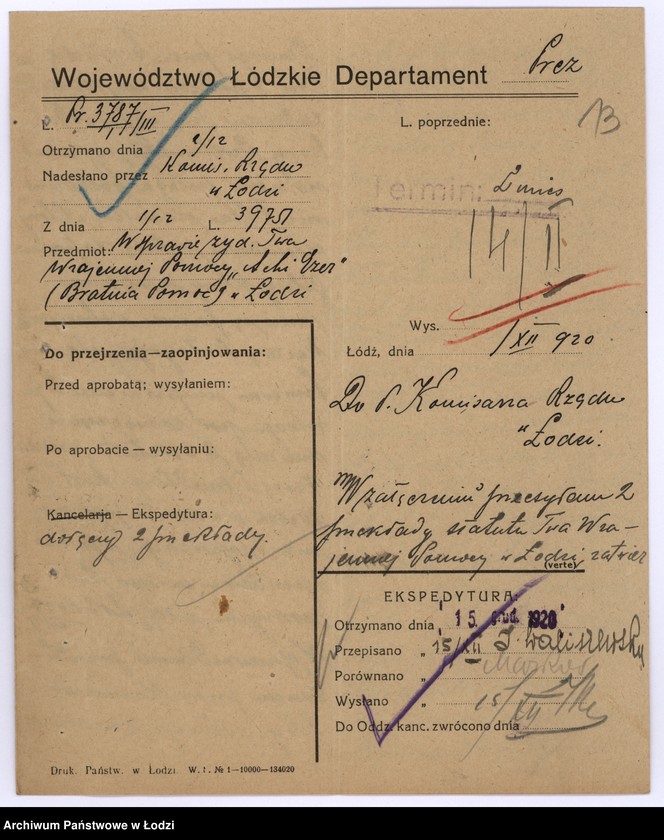 Województwo Łódzkie Departament Prez
13
L. Pr. 3787/III
Otrzymano dnia 2/12
Nadesłano przez Komis. Rządu
w Łodzi
Z dnia 1/12 L. 39751
Przedmiot: W sprawie żyd. Twa
Wzajemnej Pomocy „Achi Ezer"
(Bratnia Pomoc) w Łodzi
Do przejrzenia—zaopinjowania:
Przed aprobatą; wysyłaniem:
Po aprobacie — wysyłaniu:
Kancelarja — Ekspedytura:
dołączyć 2 przekłady.
Druk. Państw. w Łodzi. W. I. № 1—10000—134020
L. poprzednie:
Termin: 2 mies
14/II
Wys.
Łódź, dnia /XII 920
Do P. Komisarza Rządu
w Łodzi.
W załączeniu przesyłam 2
przekłady statutu Twa Wza-
jemnej Pomocy w Łodzi, zatwier
(verte)
EKSPEDYTURA:
Otrzymano dnia 15. grud. 1920
Przepisano „ 15/XII J. Waliszewska
Porównano „
Wysłano „ 15/XII
Do Oddz. kanc. zwrócono dnia
Archiwum Państwowe w Łodzi